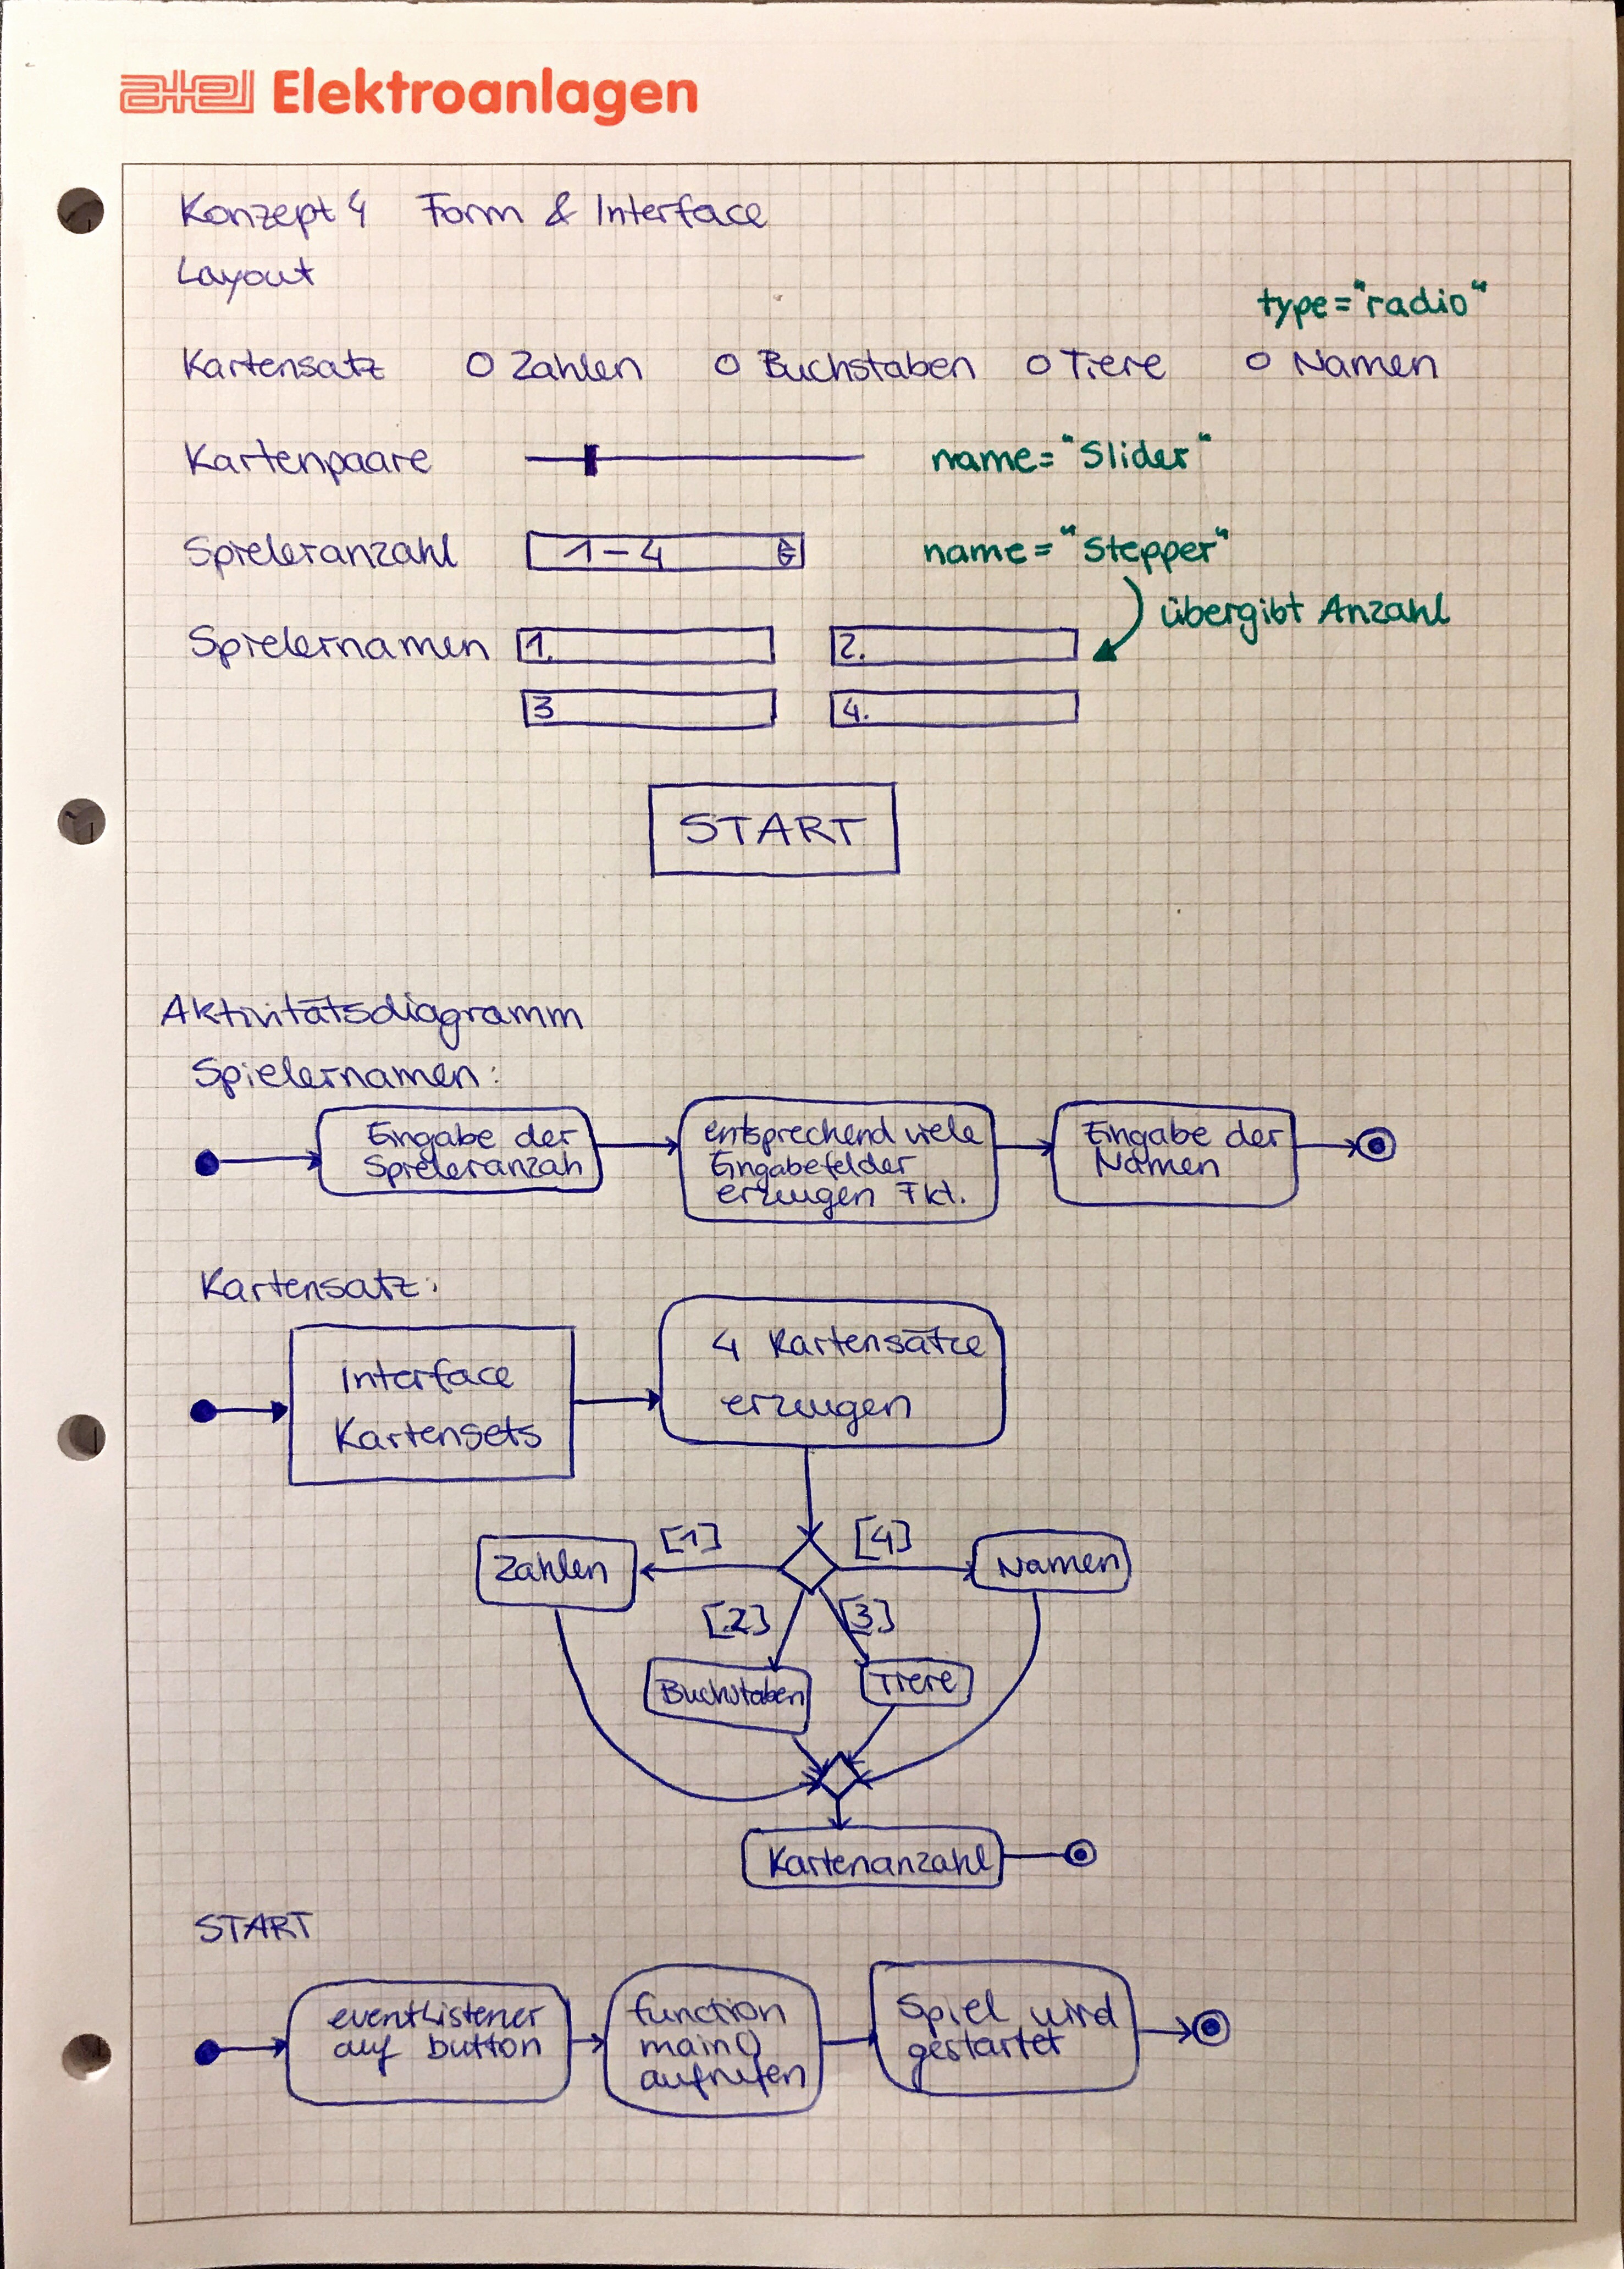 atel Elektroanlagen
Konzept 4 Form & Interface
Layout
type="radio"
Kartensatz O Zahlen O Buchstaben O Tiere O Namen
Kartenpaare name="Slider"
Spieleranzahl 1-4 name="Stepper"
übergibt Anzahl
Spielernamen 1. 2.
3 4.
START
Aktivitätsdiagramm
Spielernamen:
Eingabe der
Spieleranzah
entsprechend viele
Eingabefelder
erzeugen Fkt.
Eingabe der
Namen
Kartensatz:
Interface
Kartensets
4 Kartensätze
erzeugen
[1] [4]
Zahlen Namen
[2] [3]
Buchstaben Tiere
Kartenanzahl
START
eventListener
auf button
function
main()
aufrufen
Spiel wird
gestartet